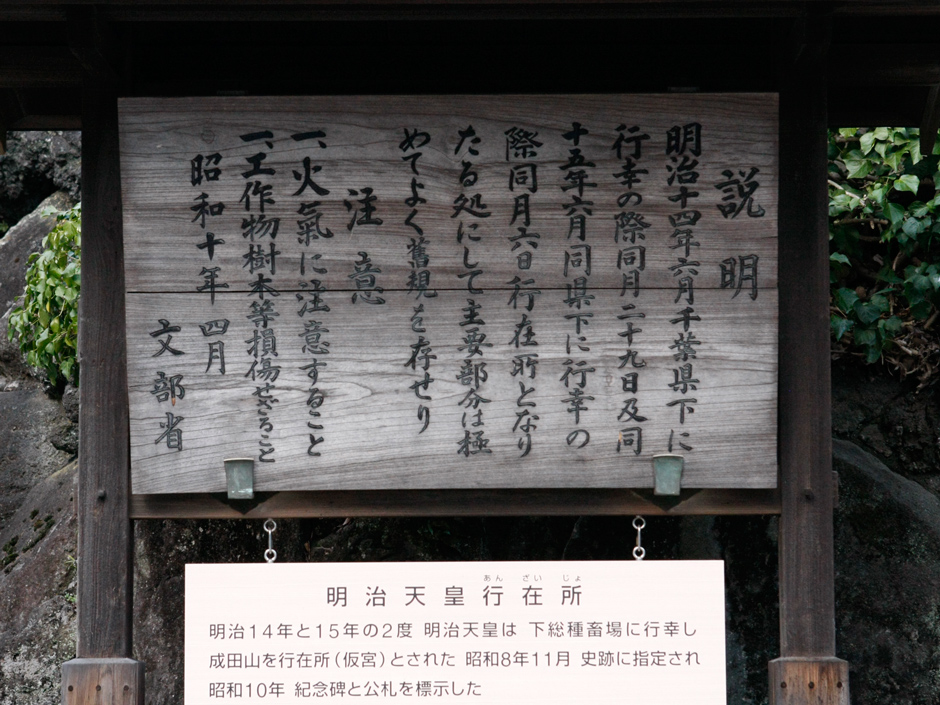 説明
明治十四年六月千葉県下に
行幸の際同月二十九日及同
十五年六月同県下に行幸の
際同月六日行在所となり
たる処にして主要部分は極
めてよく舊規を存せり
注意
一、火氣に注意すること
一、工作物樹木等損傷せざること
昭和十年四月
文部省
あん ざい じょ
明治天皇行在所
明治14年と15年の2度 明治天皇は 下総種畜場に行幸し
成田山を行在所（仮宮）とされた 昭和8年11月 史跡に指定され
昭和10年 紀念碑と公札を標示した